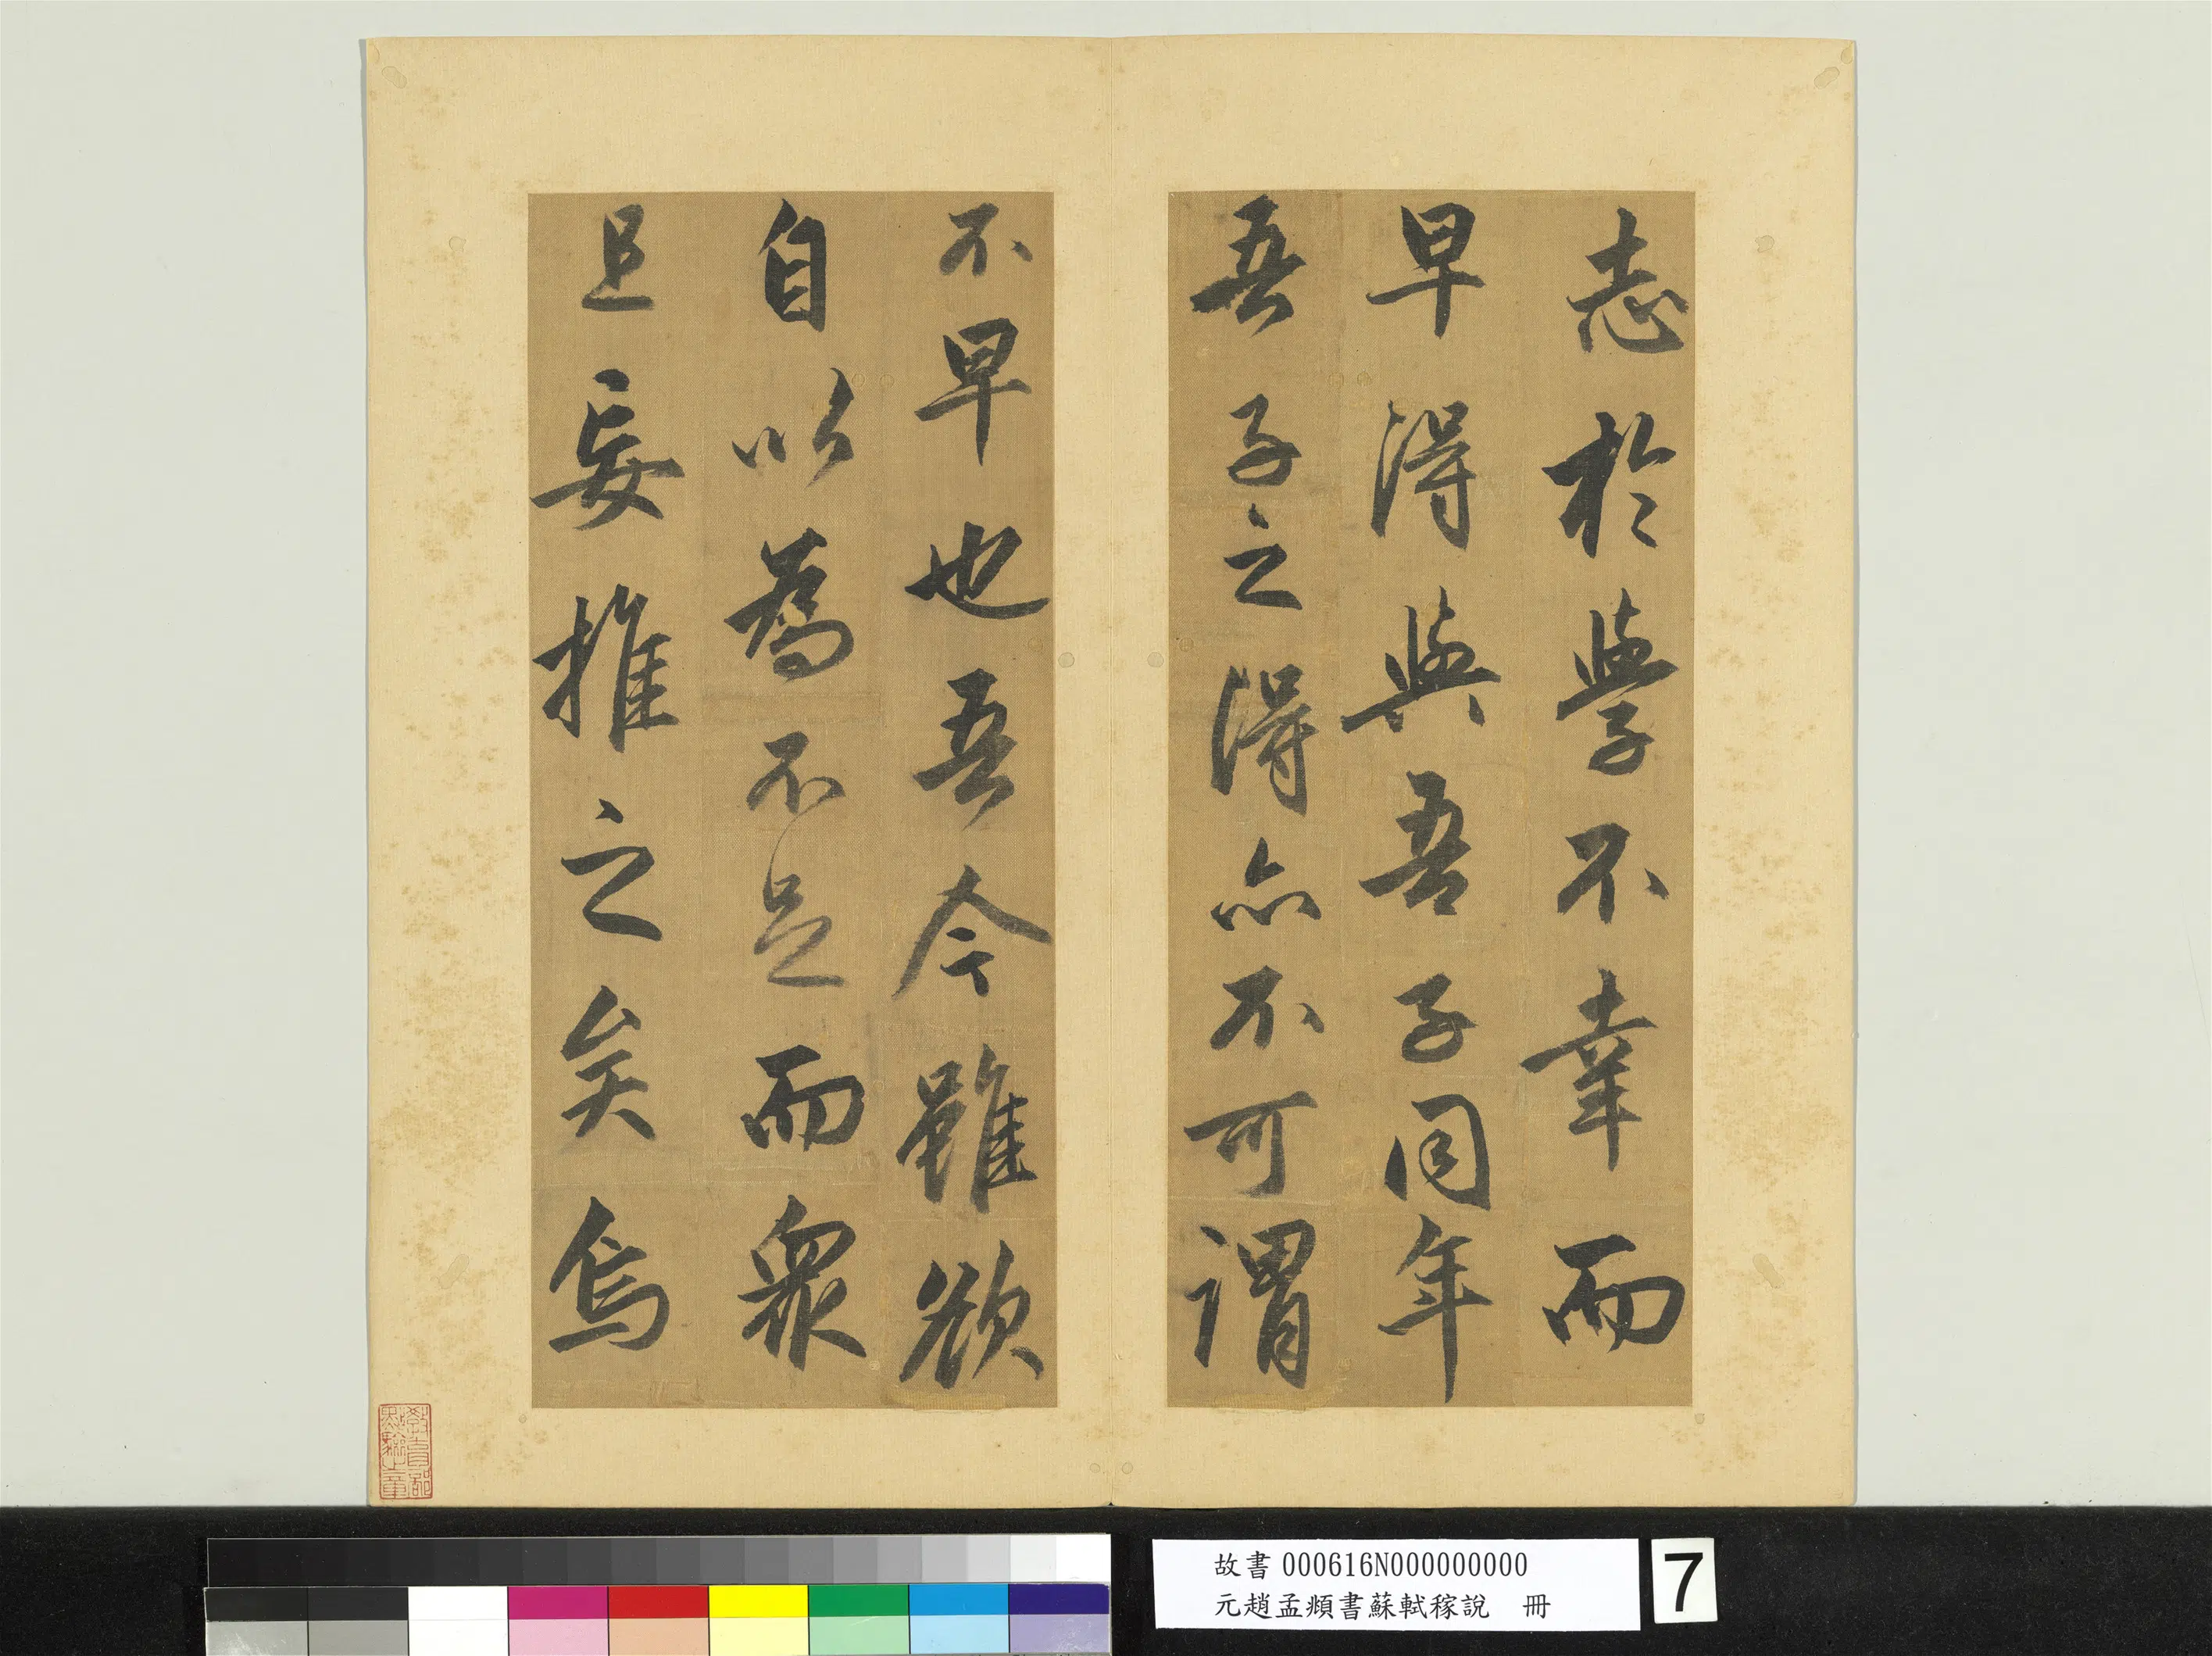 志於學不幸而
早得與吾子同年
吾子之得亦不可謂
不早也吾今雖欲
自以為不足而眾
且妄推之矣烏
教育部
點驗之章
故書000616N000000000
元趙孟頫書蘇軾稼說　冊
7